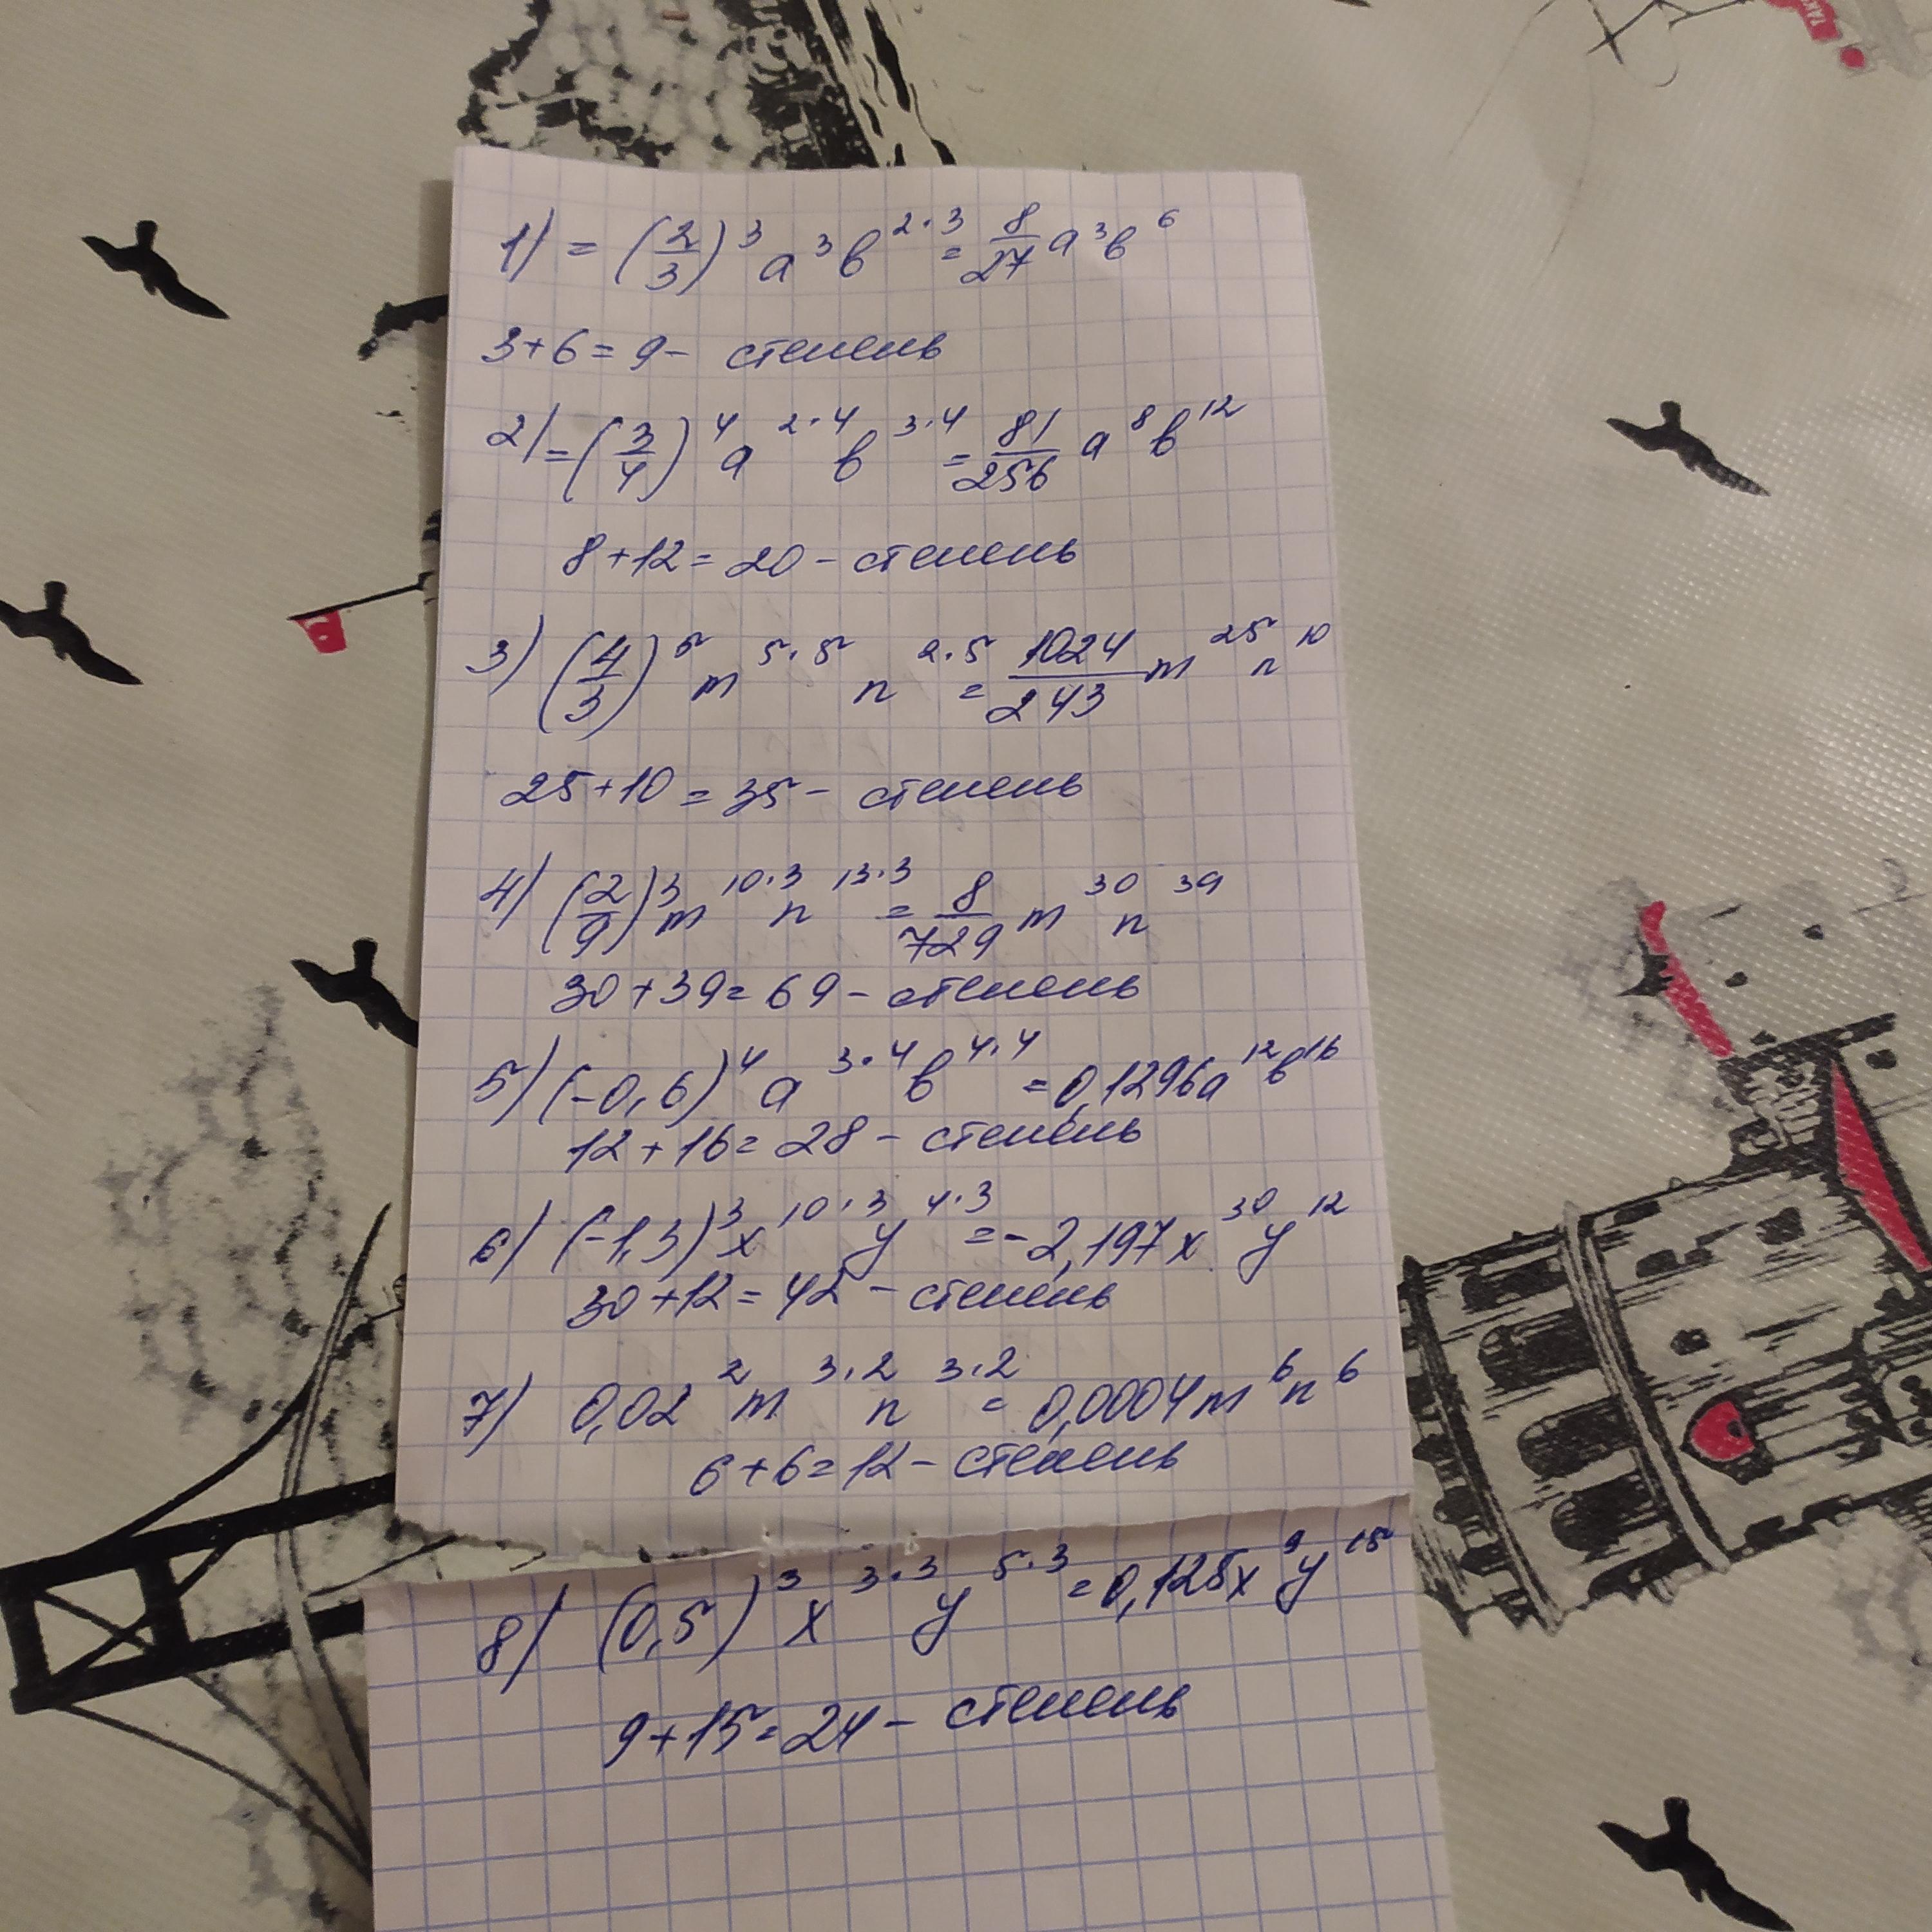 1) = (2/3)³ a³ b^2·3 = 8/27 a³ b⁶
3+6=9 – степень
2) = (3/4)⁴ a^2·4 b^3·4 = 81/256 a⁸ b¹²
8+12=20 – степень
3) (4/3)⁵ m^5·5 n^2·5 = 1024/243 m²⁵ n¹⁰
25+10=35 – степень
4) (2/9)³ m^10·3 n^13·3 = 8/729 m³⁰ n³⁹
30+39=69 – степень
5) (-0,6)⁴ a^3·4 b^4·4 = 0,1296a¹² b¹⁶
12+16=28 – степень
6) (-1,3)³ x^10·3 y^4·3 = -2,197x³⁰ y¹²
30+12=42 – степень
7) 0,02² m^3·2 n^3·2 = 0,0004m⁶ n⁶
6+6=12 – степень
8) (0,5)³ x^3·3 y^5·3 = 0,125x⁹ y¹⁵
9+15=24 – степень